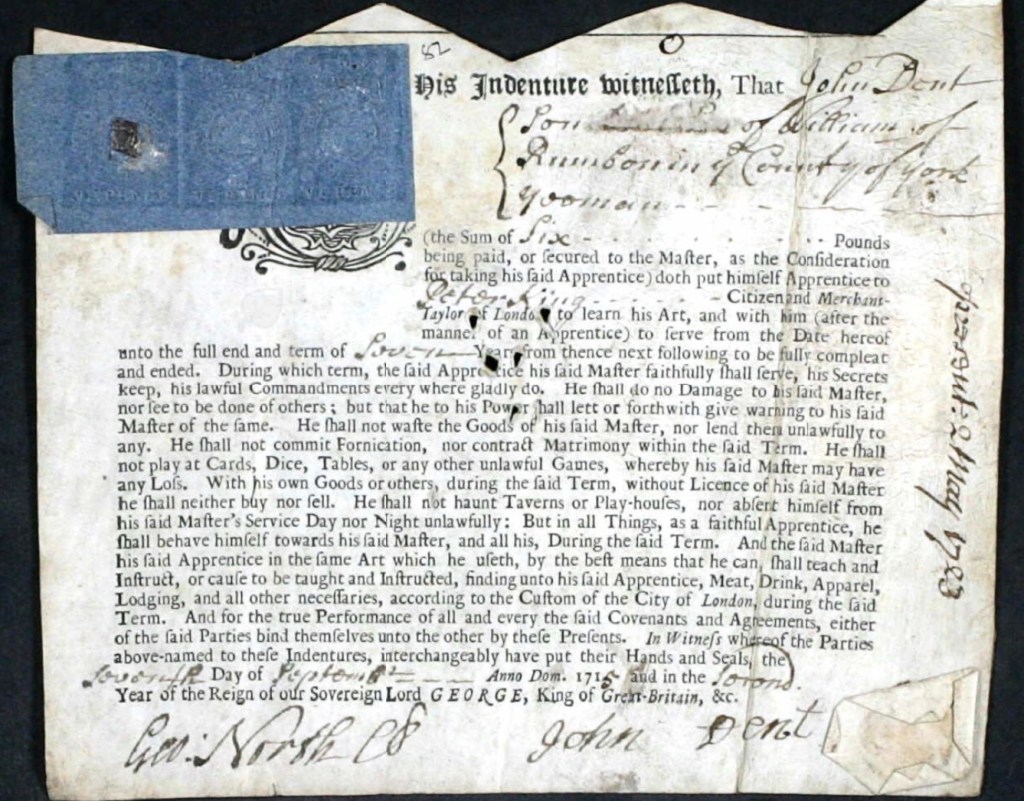 82
his Indenture witneſſeth, That John Dent
Son of William of
in ye County of York
yeoman
(the Sum of Six Pounds
being paid, or ſecured to the Maſter, as the Conſideration
for taking his ſaid Apprentice) doth put himſelf Apprentice to
Peter King Citizen and Merchant-
Taylor of London, to learn his Art, and with him (after the
manner of an Apprentice) to ſerve from the Date hereof
unto the full end and term of Seven Years from thence next following to be fully compleat
and ended. During which term, the ſaid Apprentice his ſaid Maſter faithfully ſhall ſerve, his Secrets
keep, his lawful Commandments every where gladly do. He ſhall do no Damage to his ſaid Maſter,
nor ſee to be done of others; but that he to his Power ſhall lett or forthwith give warning to his ſaid
Maſter of the ſame. He ſhall not waſte the Goods of his ſaid Maſter, nor lend them unlawfully to
any. He ſhall not commit Fornication, nor contract Matrimony within the ſaid Term. He ſhall
not play at Cards, Dice, Tables, or any other unlawful Games, whereby his ſaid Maſter may have
any Loſs. With his own Goods or others, during the ſaid Term, without Licence of his ſaid Maſter
he ſhall neither buy nor ſell. He ſhall not haunt Taverns or Play-houſes, nor abſent himſelf from
his ſaid Maſter's Service Day nor Night unlawfully: But in all Things, as a faithful Apprentice, he
ſhall behave himſelf towards his ſaid Maſter, and all his, During the ſaid Term. And the ſaid Maſter
his ſaid Apprentice in the ſame Art which he uſeth, by the beſt means that he can, ſhall teach and
Inſtruct, or cauſe to be taught and Inſtructed, finding unto his ſaid Apprentice, Meat, Drink, Apparel,
Lodging, and all other neceſſaries, according to the Cuſtom of the City of London, during the ſaid
Term. And for the true Performance of all and every the ſaid Covenants and Agreements, either
of the ſaid Parties bind themſelves unto the other by theſe Preſents. In Witneſs whereof the Parties
above-named to theſe Indentures, interchangeably have put their Hands and Seals, the
Seventh Day of September Anno Dom. 1715 and in the Second
Year of the Reign of our Sovereign Lord GEORGE, King of Great-Britain, &c.
Geo: North John Dent
May 1723